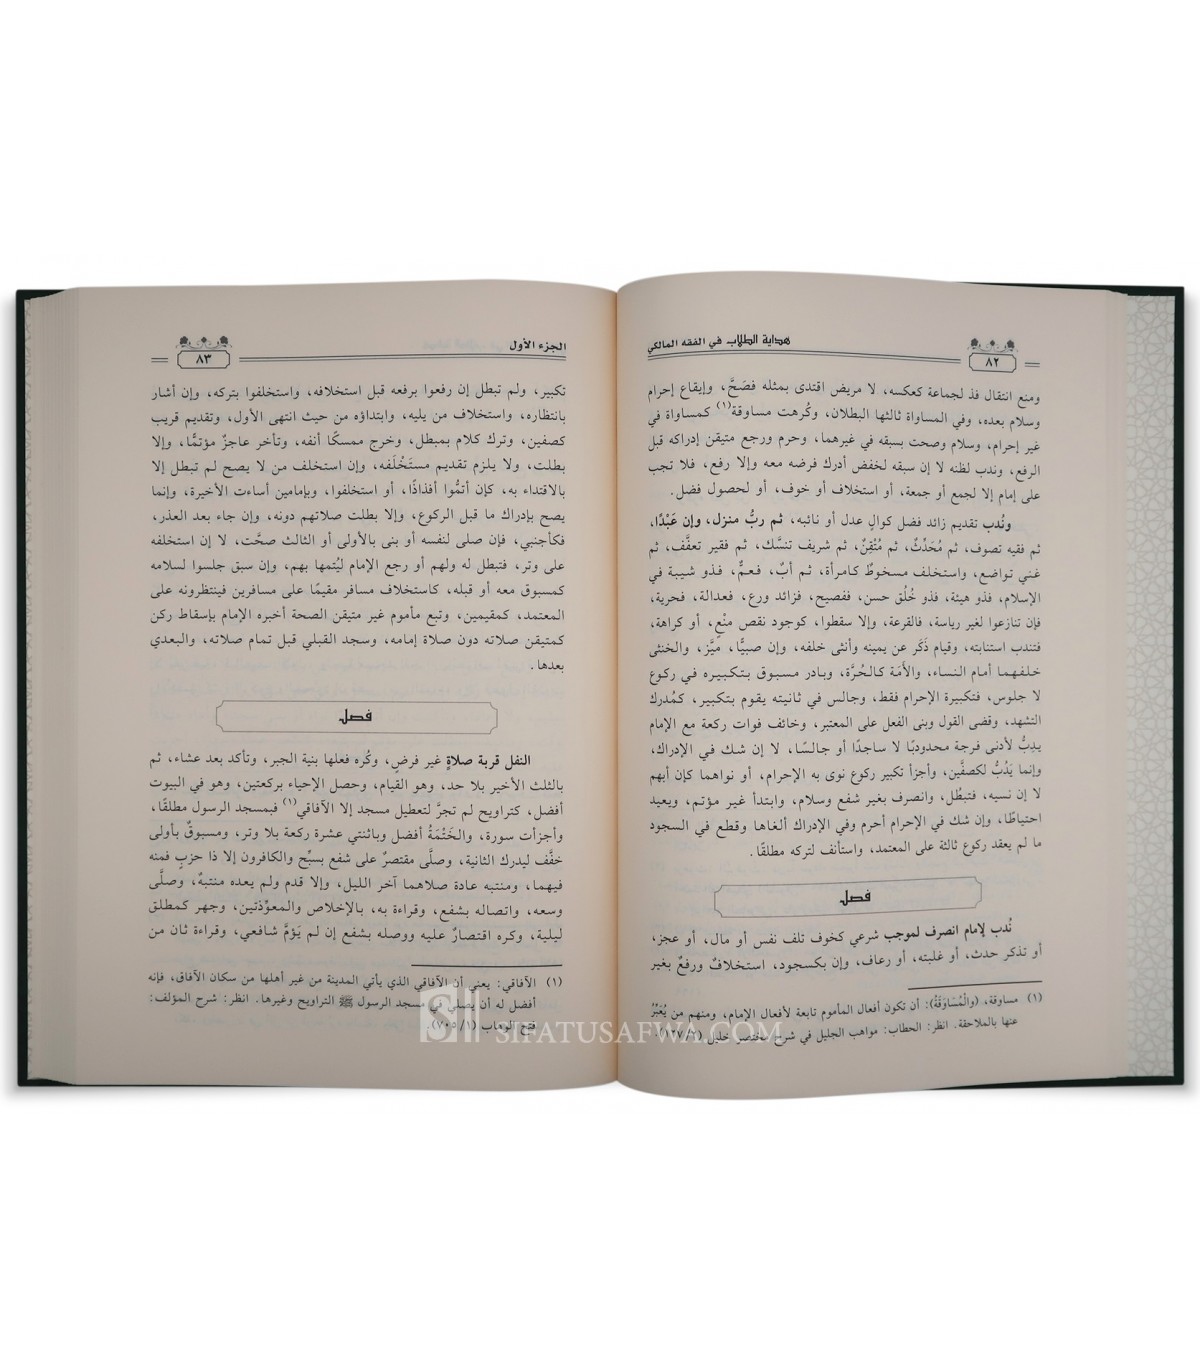 هداية الطلاب في الفقه المالكي
٨٢
ومنع انتقال فذ لجماعة كعكسه، لا مريض اقتدى بمثله فصَحَّ، وإيقاع إحرام
وسلام بعده، وفي المساواة ثالثها البطلان، وكُرهت مساوقة(١) كمساواة في
غير إحرام، وسلام وصحت بسبقه في غيرهما، وحرم ورجع متيقن إدراكه قبل
الرفع، وندب لظنه لا إن سبقه لخفض أدرك فرضه معه وإلا رفع، فلا تجب
على إمام إلا لجمع أو جمعة، أو استخلاف أو خوف، أو لحصول فضل.
ونُدب تقديم زائد فضل كوالٍ عدل أو نائبه، ثم ربُّ منزل، وإن عَبْدًا،
ثم فقيه تصوف، ثم مُحَدِّثٌ، ثم مُتْقِنٌ، ثم شريف تنسَّك، ثم فقير تعفَّف، ثم
غني تواضع، واستخلف مسخوطٌ كامرأة، ثم أبٌ، فعمٌّ، فذو شيبة في
الإسلام، فذو هيئة، فذو خُلُق حسن، ففصيح، فزائد ورع، فعدالة، فحرية،
فإن تنازعوا لغير رياسة، فالقرعة، وإلا سقطوا، كوجود نقص منْعٍ، أو كراهة،
فتندب استنابته، وقيام ذَكَر عن يمينه وأنثى خلفه، وإن صبيًّا، ميَّز، والخنثى
خلفهما أمام النساء، والأَمَة كالحُرَّة، وبادر مسبوق بتكبيره في ركوع
لا جلوس، فتكبيرة الإحرام فقط، وجالس في ثانيته يقوم بتكبير، كمُدرك
التشهد، وقضى القول وبنى الفعل على المعتبر، وخائف فوات ركعة مع الإمام
يدِبُّ لأدنى فرجة محدودبًا لا ساجدًا أو جالسًا، لا إن شك في الإدراك،
وإنما يَدُبُّ لكصفَّين، وأجزأ تكبير ركوع نوى به الإحرام، أو نواهما كان أبهم
لا إن نسيه، فتبطُل، وانصرف بغير شفع وسلام، وابتدأ غير مؤتم، ويعيد
احتياطًا، وإن شك في الإحرام أحرم وفي الإدراك ألغاها وقطع في السجود
ما لم يعقد ركوع ثالثة على المعتمد، واستأنف لتركه مطلقًا.
فصل
نُدب لإمام انصرف لموجب شرعي كخوف تلف نفس أو مال، أو عجز،
أو تذكر حدث، أو غلبته، أو رعاف، وإن بكسجود، استخلافٌ ورفعٌ بغير
(١) مساوقة، (والْمُسَاوَقَةُ): أن تكون أفعال المأموم تابعة لأفعال الإمام، ومنهم من يُعَبِّرُ
عنها بالملاحقة. انظر: الحطاب: مواهب الجليل في شرح مختصر خليل (٢/ ١٢٧).
الجزء الأول
٨٣
تكبير، ولم تبطل إن رفعوا برفعه قبل استخلافه، واستخلفوا بتركه، وإن أشار
بانتظاره، واستخلاف من يليه، وابتداؤه من حيث انتهى الأول، وتقديم قريب
كصفين، وترك كلام بمبطل، وخرج ممسكًا أنفه، وتأخر عاجزٌ مؤتمًّا، وإلا
بطلت، ولا يلزم تقديم مستَخْلَفه، وإن استخلف من لا يصح لم تبطل إلا
بالاقتداء به، كإن أتمُّوا أفذاذًا، أو استخلفوا، وبإمامين أساءت الأخيرة، وإنما
يصح بإدراك ما قبل الركوع، وإلا بطلت صلاتهم دونه، وإن جاء بعد العذر،
فكأجنبي، فإن صلى لنفسه أو بنى بالأولى أو الثالث صحَّت، لا إن استخلفه
على وتر، فتبطل له ولهم أو رجع الإمام ليُتمها بهم، وإن سبق جلسوا لسلامه
كمسبوق معه أو قبله، كاستخلاف مسافر مقيمًا على مسافرين فينتظرونه على
المعتمد، كمقيمين، وتبع مأموم غير متيقن الصحة أخبره الإمام بإسقاط ركن
كمتيقن صلاته دون صلاة إمامه، وسجد القبلي قبل تمام صلاته، والبعدي
بعدها.
فصل
النفل قربة صلاةٍ غير فرضٍ، وكُره فعلها بنية الجبر، وتأكد بعد عشاء، ثم
بالثلث الأخير بلا حد، وهو القيام، وحصل الإحياء بركعتين، وهو في البيوت
أفضل، كتراويح لم تجرَّ لتعطيل مسجد إلا الآفاقي(١) فبمسجد الرسول مطلقًا،
وأجزأت سورة، والخَتْمَةُ أفضل وباثنتي عشرة ركعة بلا وتر، ومسبوقٌ بأولى
خفَّف ليدرك الثانية، وصلَّى مقتصرٌ على شفع بسبِّح والكافرون إلا ذا حزبٍ فمنه
فيهما، ومنتبه عادة صلاهما آخر الليل، وإلا قدم ولم يعده منتبهٌ، وصلَّى
وسعه، واتصاله بشفع، وقراءة به، بالإخلاص والمعوِّذتين، وجهر كمطلق
ليلية، وكره اقتصارٌ عليه ووصله بشفع إن لم يَؤمَّ شافعي، وقراءة ثان من
(١) الآفاقي: يعني أن الآفاقي الذي يأتي المدينة من غير أهلها من سكان الآفاق، فإنه
أفضل له أن يصلي في مسجد الرسول ﷺ التراويح وغيرها. انظر: شرح المؤلف:
فتح الوهاب (١/ ٧٠٥).
SIFATUSAFWA.COM